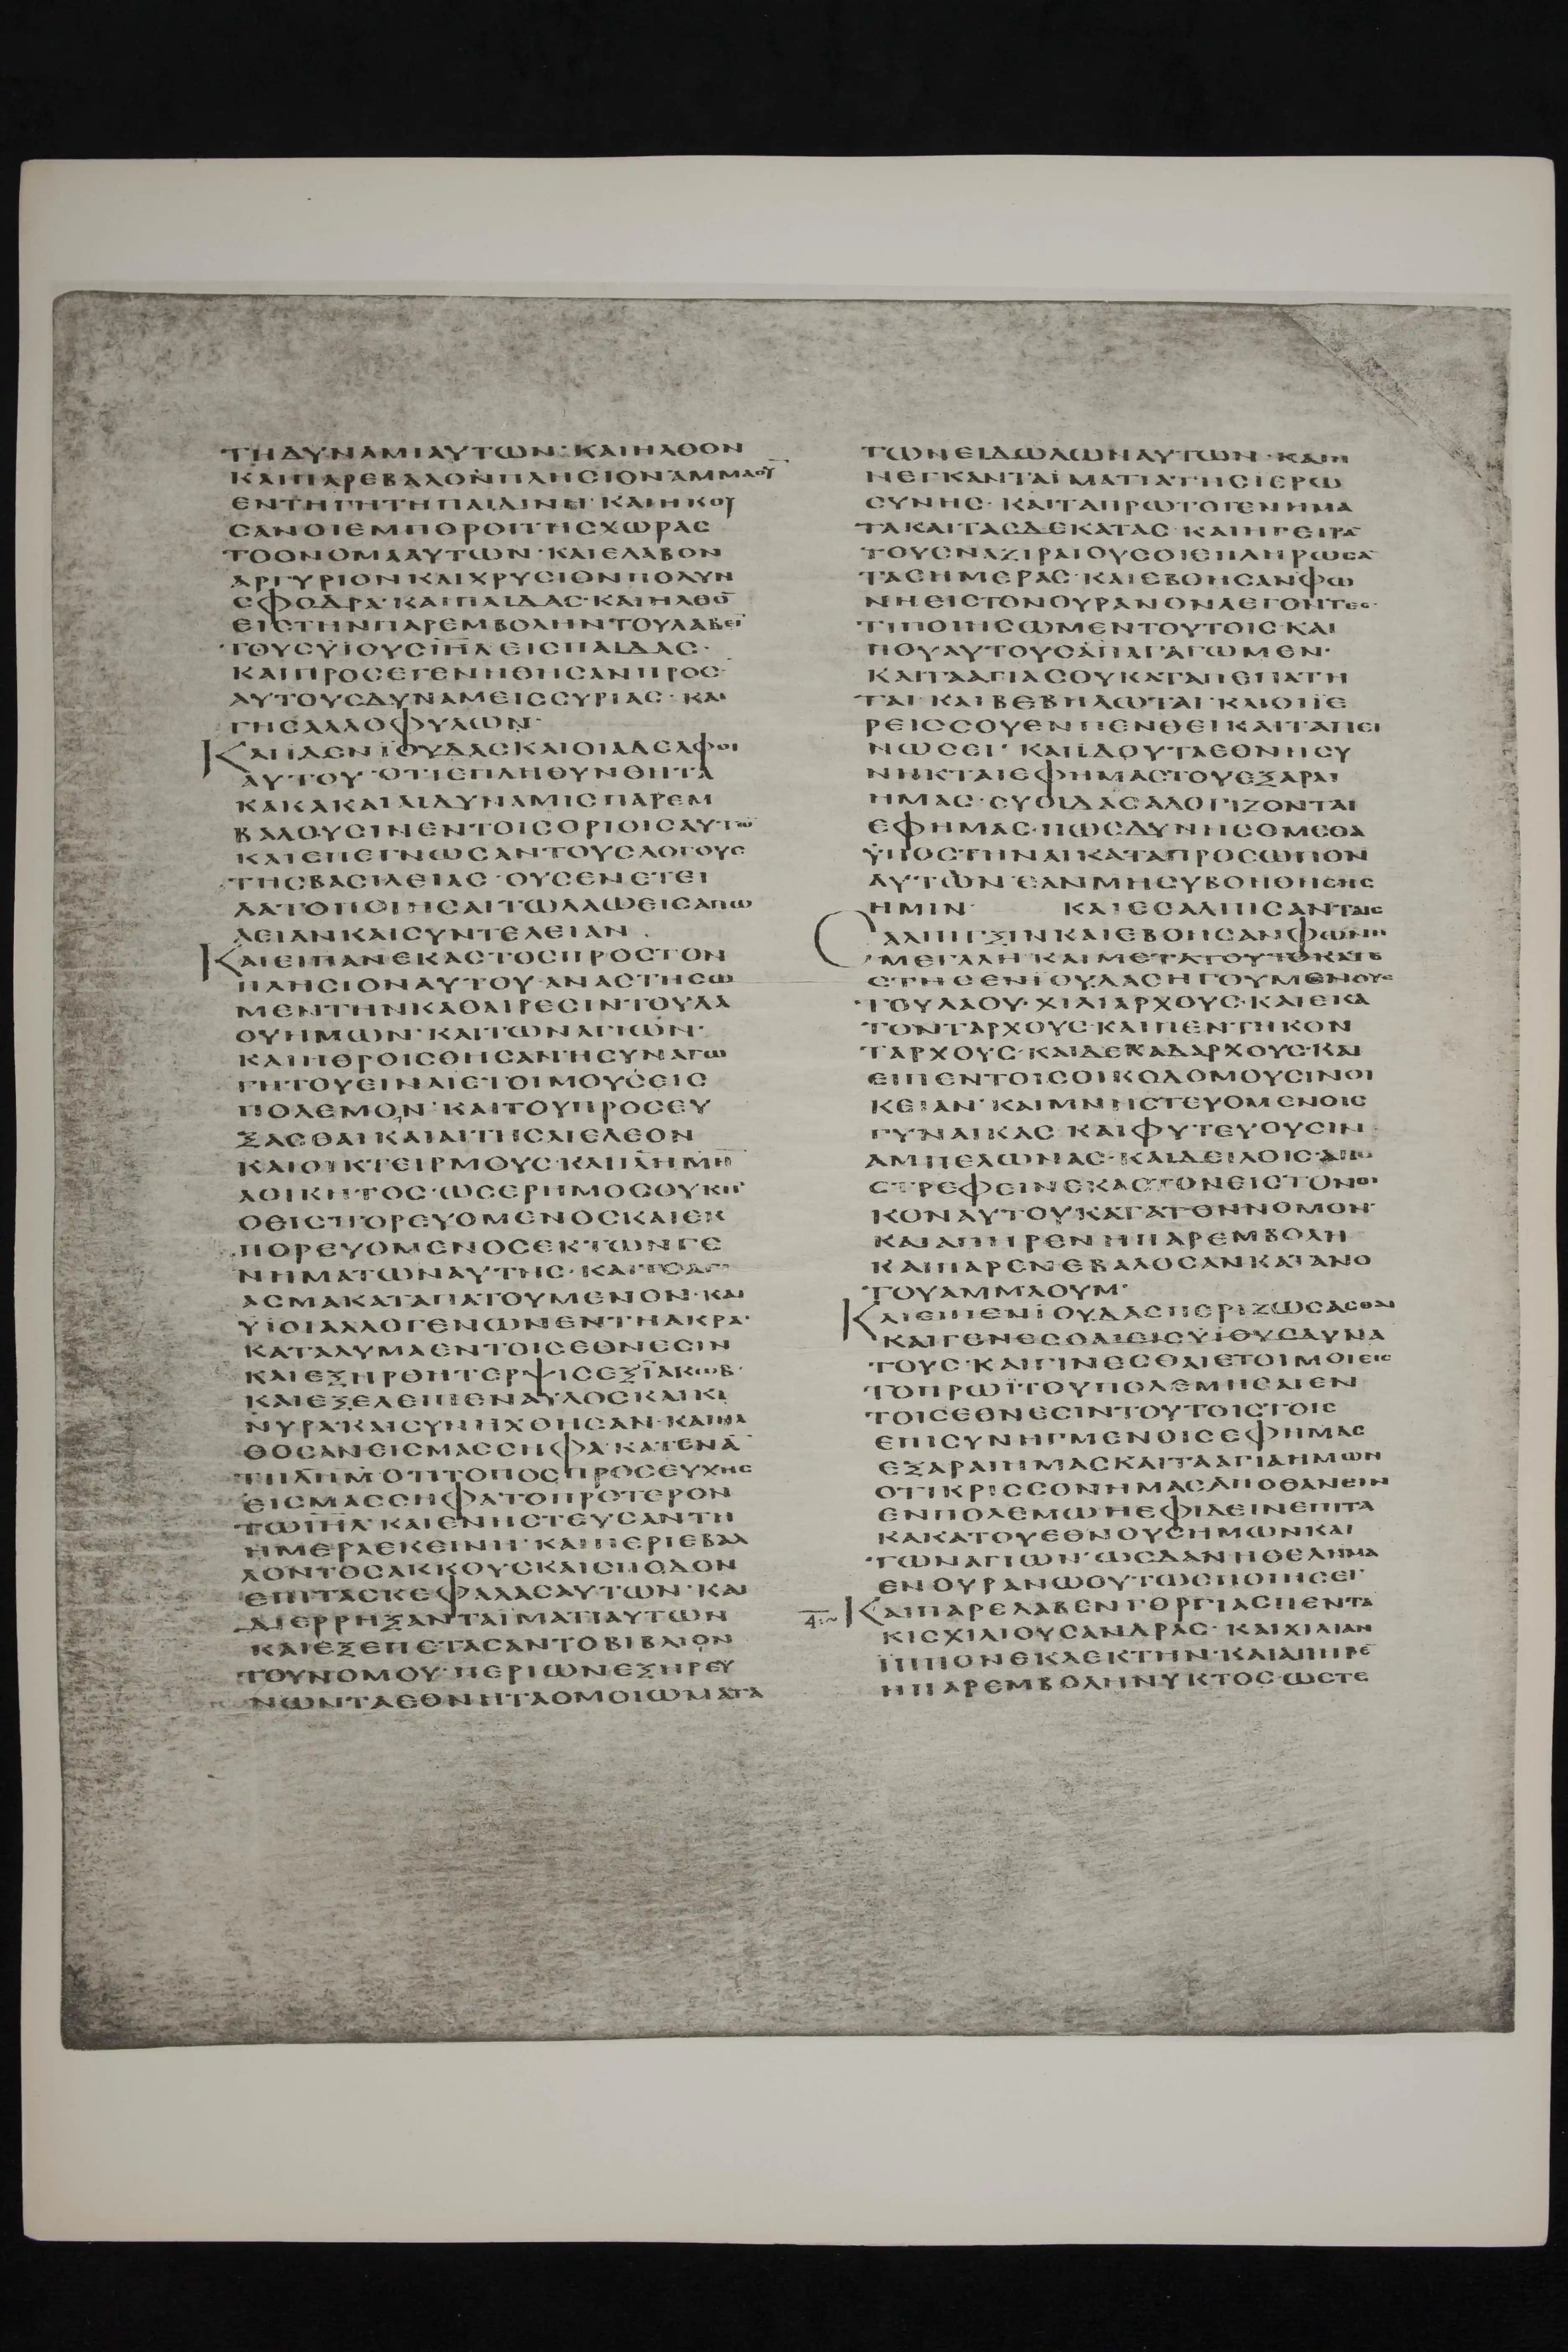 ΤΗΔΥΝΑΜΙΑΥΤΩΝ· ΚΑΙΗΛΘΟΝ
ΚΑΙΠΑΡΕΒΑΛΟΝΠΛΗΣΙΟΝΑΜΜΑΟΥ̅
ΕΝΤΗΓΗΤΗΠΑΙΔΙΝΗ· ΚΑΙΗΚΟΥ
ϹΑΝΟΙΕΜΠΟΡΟΙΤΗϹΧΩΡΑϹ
ΤΟΟΝΟΜΑΑΥΤΩΝ· ΚΑΙΕΛΑΒΟΝ
ΑΡΓΥΡΙΟΝΚΑΙΧΡΥϹΙΟΝΠΟΛΥΝ
ϹΦΟΔΡΑ· ΚΑΙΠΑΙΔΑϹ· ΚΑΙΗΛΘΟ̅
ΕΙϹΤΗΝΠΑΡΕΜΒΟΛΗΝΤΟΥΛΑΒΕΙ̅
ΤΟΥϹΥΪΟΥϹΙ̅Η̅Λ̅ΕΙϹΠΑΙΔΑϹ·
ΚΑΙΠΡΟϹΕΓΕΝΗΘΗϹΑΝΠΡΟϹ
ΑΥΤΟΥϹΔΥΝΑΜΕΙϹϹΥΡΙΑϹ· ΚΑΙ
ΓΗϹΑΛΛΟΦΥΛΩΝ·
ΚΑΙΪΔΕΝΪΟΥΔΑϹΚΑΙΟΙΑΔΕΛΦΟΙ
ΑΥΤΟΥ· ΟΤΙΕΠΛΗΘΥΝΘΗΤΑ
ΚΑΚΑΚΑΙΑΙΔΥΝΑΜΙϹΠΑΡΕΜ
ΒΑΛΟΥϹΙΝΕΝΤΟΙϹΟΡΙΟΙϹΑΥΤΩ̅
ΚΑΙΕΠΕΓΝΩϹΑΝΤΟΥϹΛΟΓΟΥϹ
ΤΗϹΒΑϹΙΛΕΙΑϹ· ΟΥϹΕΝΕΤΕΙ
ΛΑΤΟΠΟΙΗϹΑΙΤΩΛΑΩΕΙϹΑΠΩ
ΛΕΙΑΝΚΑΙϹΥΝΤΕΛΕΙΑΝ.
ΚΑΙΕΙΠΑΝΕΚΑϹΤΟϹΠΡΟϹΤΟΝ
ΠΛΗϹΙΟΝΑΥΤΟΥ· ΑΝΑϹΤΗϹΩ
ΜΕΝΤΗΝΚΑΘΑΙΡΕϹΙΝΤΟΥΛΑ
ΟΥΗΜΩΝ· ΚΑΙΤΩΝΑΓΙΩΝ·
ΚΑΙΗΘΡΟΙϹΘΗϹΑΝΗϹΥΝΑΓΩ
ΓΗΤΟΥΕΙΝΑΙΕΤΟΙΜΟΥϹΕΙϹ
ΠΟΛΕΜΟΝ· ΚΑΙΤΟΥΠΡΟϹΕΥ
ΞΑϹΘΑΙΚΑΙΑΙΤΗϹΑΙΕΛΕΟΝ
ΚΑΙΟΙΚΤΕΙΡΜΟΥϹ· ΚΑΙΙ̅Λ̅Η̅Μ̅Η̅
ΑΟΙΚΗΤΟϹ· ΩϹΕΡΗΜΟϹΟΥΚΗ̅
ΟΘΕΙϹΠΟΡΕΥΟΜΕΝΟϹΚΑΙΕΚ
ΠΟΡΕΥΟΜΕΝΟϹΕΚΤΩΝΓΕ
ΝΗΜΑΤΩΝΑΥΤΗϹ· ΚΑΙΤΟΑΓΙ
ΑϹΜΑΚΑΤΑΠΑΤΟΥΜΕΝΟΝ· ΚΑΙ
ΥΪΟΙΑΛΛΟΓΕΝΩΝΕΝΤΗΑΚΡΑ·
ΚΑΤΑΛΥΜΑΕΝΤΟΙϹΕΘΝΕϹΙΝ
ΚΑΙΕΞΗΡΘΗΤΕΡΨΙϹΕΞΪΑΚΩΒ·
ΚΑΙΕΞΕΛΕΙΠΕΝΑΥΛΟϹΚΑΙΚΙ
ΝΥΡΑ· ΚΑΙϹΥΝΗΧΘΗϹΑΝ· ΚΑΙΗΛ
ΘΟϹΑΝΕΙϹΜΑϹϹΗΦΑ· ΚΑΤΕΝΑ̅
ΤΙΙ̅Λ̅Η̅Μ̅ΟΤΙΤΟΠΟϹΠΡΟϹΕΥΧΗϹ
ΕΙϹΜΑϹϹΗΦΑΤΟΠΡΟΤΕΡΟΝ
ΤΩΙ̅Η̅Λ̅· ΚΑΙΕΝΗϹΤΕΥϹΑΝΤΗ
ΗΜΕΡΑΕΚΕΙΝΗ· ΚΑΙΠΕΡΙΕΒΑΛ
ΛΟΝΤΟϹΑΚΚΟΥϹΚΑΙϹΠΟΔΟΝ
ΕΠΙΤΑϹΚΕΦΑΛΑϹΑΥΤΩΝ· ΚΑΙ
ΔΙΕΡΡΗΞΑΝΤΑΪΜΑΤΙΑΑΥΤΩΝ
ΚΑΙΕΞΕΠΕΤΑϹΑΝΤΟΒΙΒΛΙΟΝ
ΤΟΥΝΟΜΟΥ· ΠΕΡΙΩΝΕΞΗΡΕΥ
ΝΩΝΤΑΕΘΝΗΤΑΟΜΟΙΩΜΑΤΑ
ΤΩΝΕΙΔΩΛΩΝΑΥΤΩΝ· ΚΑΙΗ
ΝΕΓΚΑΝΤΑΪΜΑΤΙΑΤΗϹΙΕΡΩ
ϹΥΝΗϹ· ΚΑΙΤΑΠΡΩΤΟΓΕΝΗΜΑ
ΤΑΚΑΙΤΑϹΔΕΚΑΤΑϹ· ΚΑΙΗΓΕΙΡΑ̅
ΤΟΥϹΝΑΖΙΡΑΙΟΥϹΟΙΕΠΛΗΡΩϹΑ̅
ΤΑϹΗΜΕΡΑϹ· ΚΑΙΕΒΟΗϹΑΝΦΩ
ΝΗΕΙϹΤΟΝΟΥΡΑΝΟΝΛΕΓΟΝΤΕϹ·
ΤΙΠΟΙΗϹΩΜΕΝΤΟΥΤΟΙϹ· ΚΑΙ
ΠΟΥΑΥΤΟΥϹΑΠΑΓΑΓΩΜΕΝ·
ΚΑΙΤΑΑΓΙΑϹΟΥΚΑΤΑΠΕΠΑΤΗ
ΤΑΙ· ΚΑΙΒΕΒΗΛΩΤΑΙ· ΚΑΙΟΙΪΕ
ΡΕΙϹϹΟΥΕΝΠΕΝΘΕΙΚΑΙΤΑΠΕΙ
ΝΩϹΕΙ· ΚΑΙΪΔΟΥΤΑΕΘΝΗϹΥ
ΝΗΚΤΑΙΕΦΗΜΑϹΤΟΥΕΞΑΡΑΙ
ΗΜΑϹ· ϹΥΟΙΔΑϹΑΛΟΓΙΖΟΝΤΑΙ
ΕΦΗΜΑϹ· ΠΩϹΔΥΝΗϹΟΜΕΘΑ
ΫΠΟϹΤΗΝΑΙΚΑΤΑΠΡΟϹΩΠΟΝ
ΑΥΤΩΝ· ΕΑΝΜΗϹΥΒΟΗΘΗϹΗϹ
ΗΜΙΝ· ΚΑΙΕϹΑΛΠΙϹΑΝΤΑΙϹ
ϹΑΛΠΙΓΞΙΝΚΑΙΕΒΟΗϹΑΝΦΩΝΗ
ΜΕΓΑΛΗ· ΚΑΙΜΕΤΑΤΟΥΤΟΚΑΤΕ
ϹΤΗϹΕΝΪΟΥΔΑϹΗΓΟΥΜΕΝΟΥϹ
ΤΟΥΛΑΟΥ· ΧΙΛΙΑΡΧΟΥϹ· ΚΑΙΕΚΑ
ΤΟΝΤΑΡΧΟΥϹ· ΚΑΙΠΕΝΤΗΚΟΝ
ΤΑΡΧΟΥϹ· ΚΑΙΔΕΚΑΔΑΡΧΟΥϹ· ΚΑΙ
ΕΙΠΕΝΤΟΙϹΟΙΚΟΔΟΜΟΥϹΙΝΟΙ
ΚΕΙΑΝ· ΚΑΙΜΝΗϹΤΕΥΟΜΕΝΟΙϹ
ΓΥΝΑΙΚΑϹ· ΚΑΙΦΥΤΕΥΟΥϹΙΝ
ΑΜΠΕΛΩΝΑϹ· ΚΑΙΔΕΙΛΟΙϹ· ΑΠΟ
ϹΤΡΕΦΕΙΝΕΚΑϹΤΟΝΕΙϹΤΟΝΟΙ
ΚΟΝΑΥΤΟΥΚΑΤΑΤΟΝΝΟΜΟΝ·
ΚΑΙΑΠΗΡΕΝΗΠΑΡΕΜΒΟΛΗ
ΚΑΙΠΑΡΕΝΕΒΑΛΟϹΑΝΚΑΤΑΝΟ
ΤΟΥΑΜΜΑΟΥΜ·
ΚΑΙΕΙΠΕΝΪΟΥΔΑϹΠΕΡΙΖΩϹΑϹΘΑΙ
ΚΑΙΓΕΝΕϹΘΑΙΕΙϹΥΪΟΥϹΔΥΝΑ
ΤΟΥϹ· ΚΑΙΓΙΝΕϹΘΑΙΕΤΟΙΜΟΙΕΙϹ
ΤΟΠΡΩΪΤΟΥΠΟΛΕΜΗϹΑΙΕΝ
ΤΟΙϹΕΘΝΕϹΙΝΤΟΥΤΟΙϹΤΟΙϹ
ΕΠΙϹΥΝΗΓΜΕΝΟΙϹΕΦΗΜΑϹ
ΕΞΑΡΑΙΗΜΑϹΚΑΙΤΑΑΓΙΑΗΜΩΝ
ΟΤΙΚΡΙϹϹΟΝΗΜΑϹΑΠΟΘΑΝΕΙΝ
ΕΝΠΟΛΕΜΩΗΕΦΙΔΕΙΝΕΠΙΤΑ
ΚΑΚΑΤΟΥΕΘΝΟΥϹΗΜΩΝΚΑΙ
ΤΩΝΑΓΙΩΝ· ΩϹΔΑΝΗΘΕΛΗΜΑ
ΕΝΟΥΡΑΝΩΟΥΤΩϹΠΟΙΗϹΕΙ·
ΚΑΙΠΑΡΕΛΑΒΕΝΓΟΡΓΙΑϹΠΕΝΤΑ
ΚΙϹΧΙΛΙΟΥϹΑΝΔΡΑϹ· ΚΑΙΧΙΛΙΑΝ
ΪΠΠΟΝΕΚΛΕΚΤΗΝ· ΚΑΙΑΠΗΡΕ̅
ΗΠΑΡΕΜΒΟΛΗΝΥΚΤΟϹ· ΩϹΤΕ